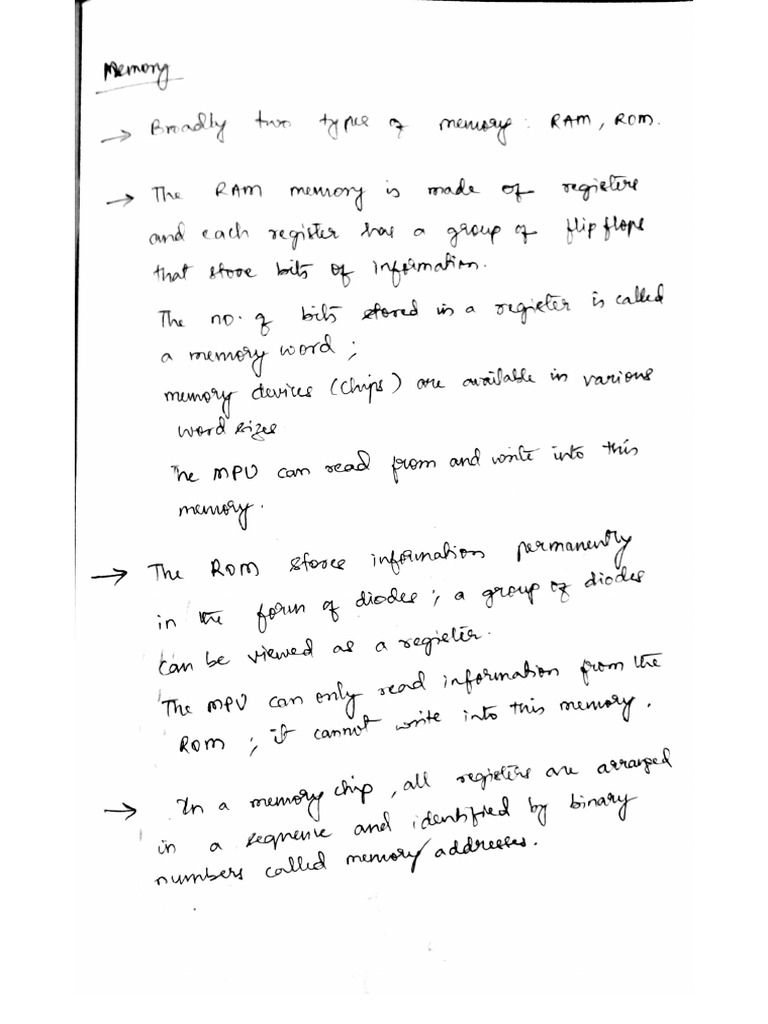 Memory
→ Broadly two types of memory: RAM, ROM.
→ The RAM memory is made of registers
and each register has a group of flip flops
that store bits of information.
The no. of bits stored in a register is called
a memory word;
memory devices (chips) are available in various
word sizes
The MPU can read from and write into this
memory.
→ The ROM stores information permanently
in the form of diodes; a group of diodes
can be viewed as a register.
The MPU can only read information from the
ROM; it cannot write into this memory.
→ In a memory chip, all registers are arranged
in a sequence and identified by binary
numbers called memory addresses.